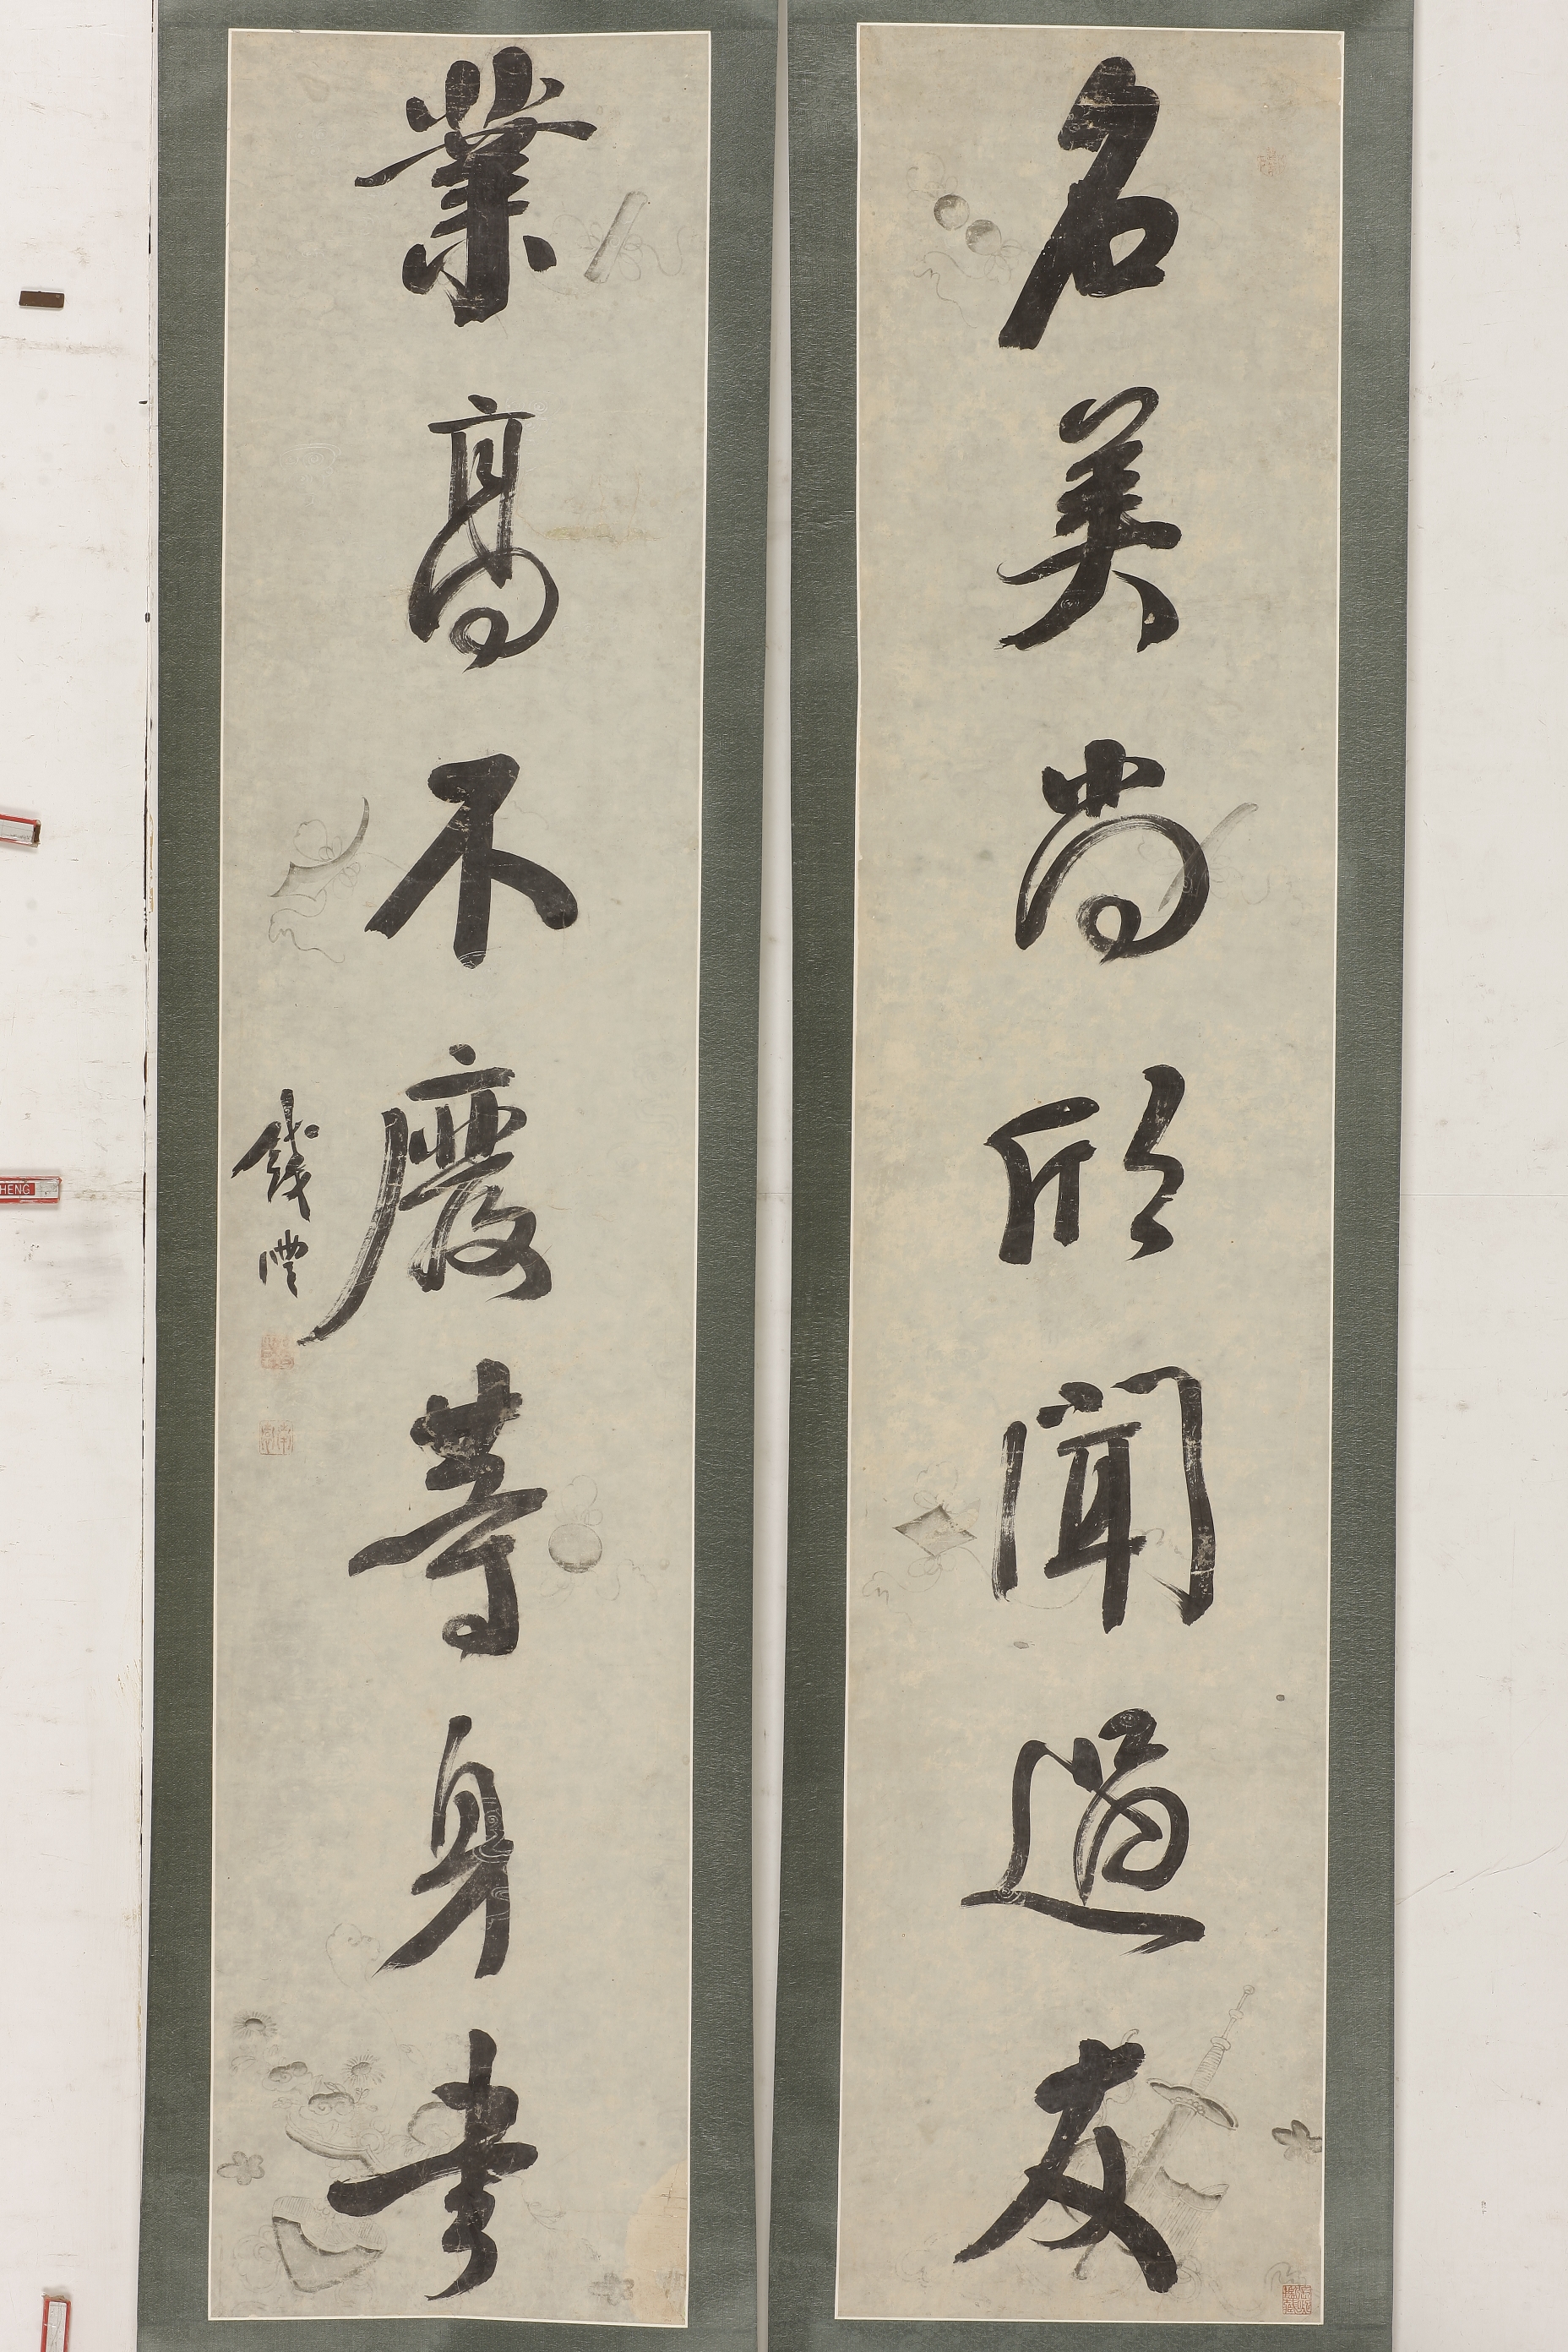 名美尚欣聞過友
業高不廢等身書
錢灃
HENG